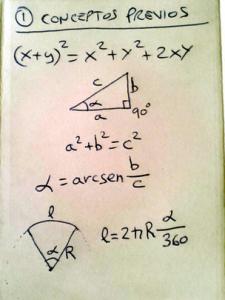 ① CONCEPTOS PREVIOS
(x+y)² = x² + y² + 2xy
c
b
α
a
90°
a² + b² = c²
α = arcsen b/c
l
α
R
l = 2πR α/360